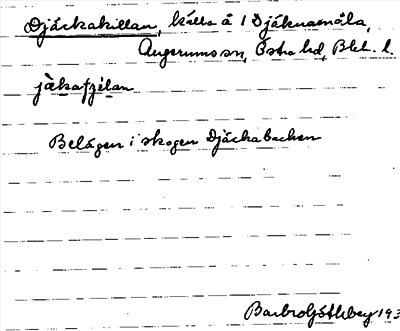 Djäckakällan, källa å 1 Djäknamåla,
Augerums sn, Östra hd, Blek. l.
jàkaɟɛ́lan
Belägen i skogen Djäckabacken
Barbro Götlberg 193